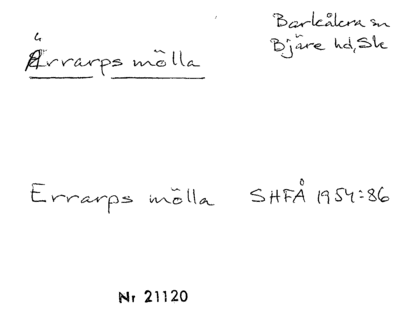 Ärrarps mölla
Barkåkra sn
Bjäre hd, Sk
Errarps mölla SHFÅ 1954:86
Nr 21120